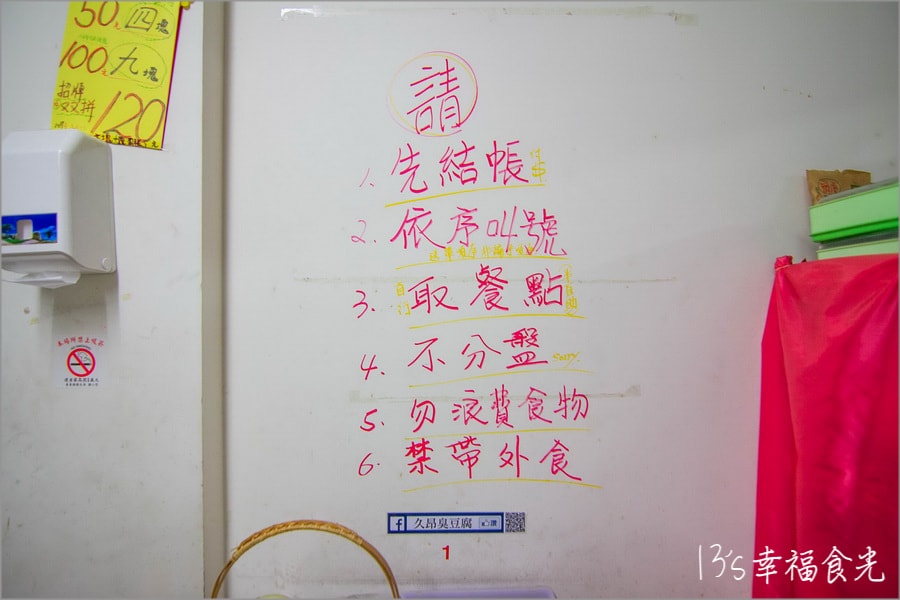 50元 四塊
100元 九塊
招牌
双拼
120
請
1. 先結帳
2. 依序叫號
3. 取餐點
4. 不分盤 sorry
5. 勿浪費食物
6. 禁帶外食
本場所禁止吸菸
f 久昂臭豆腐 讚
1
13's幸福食光